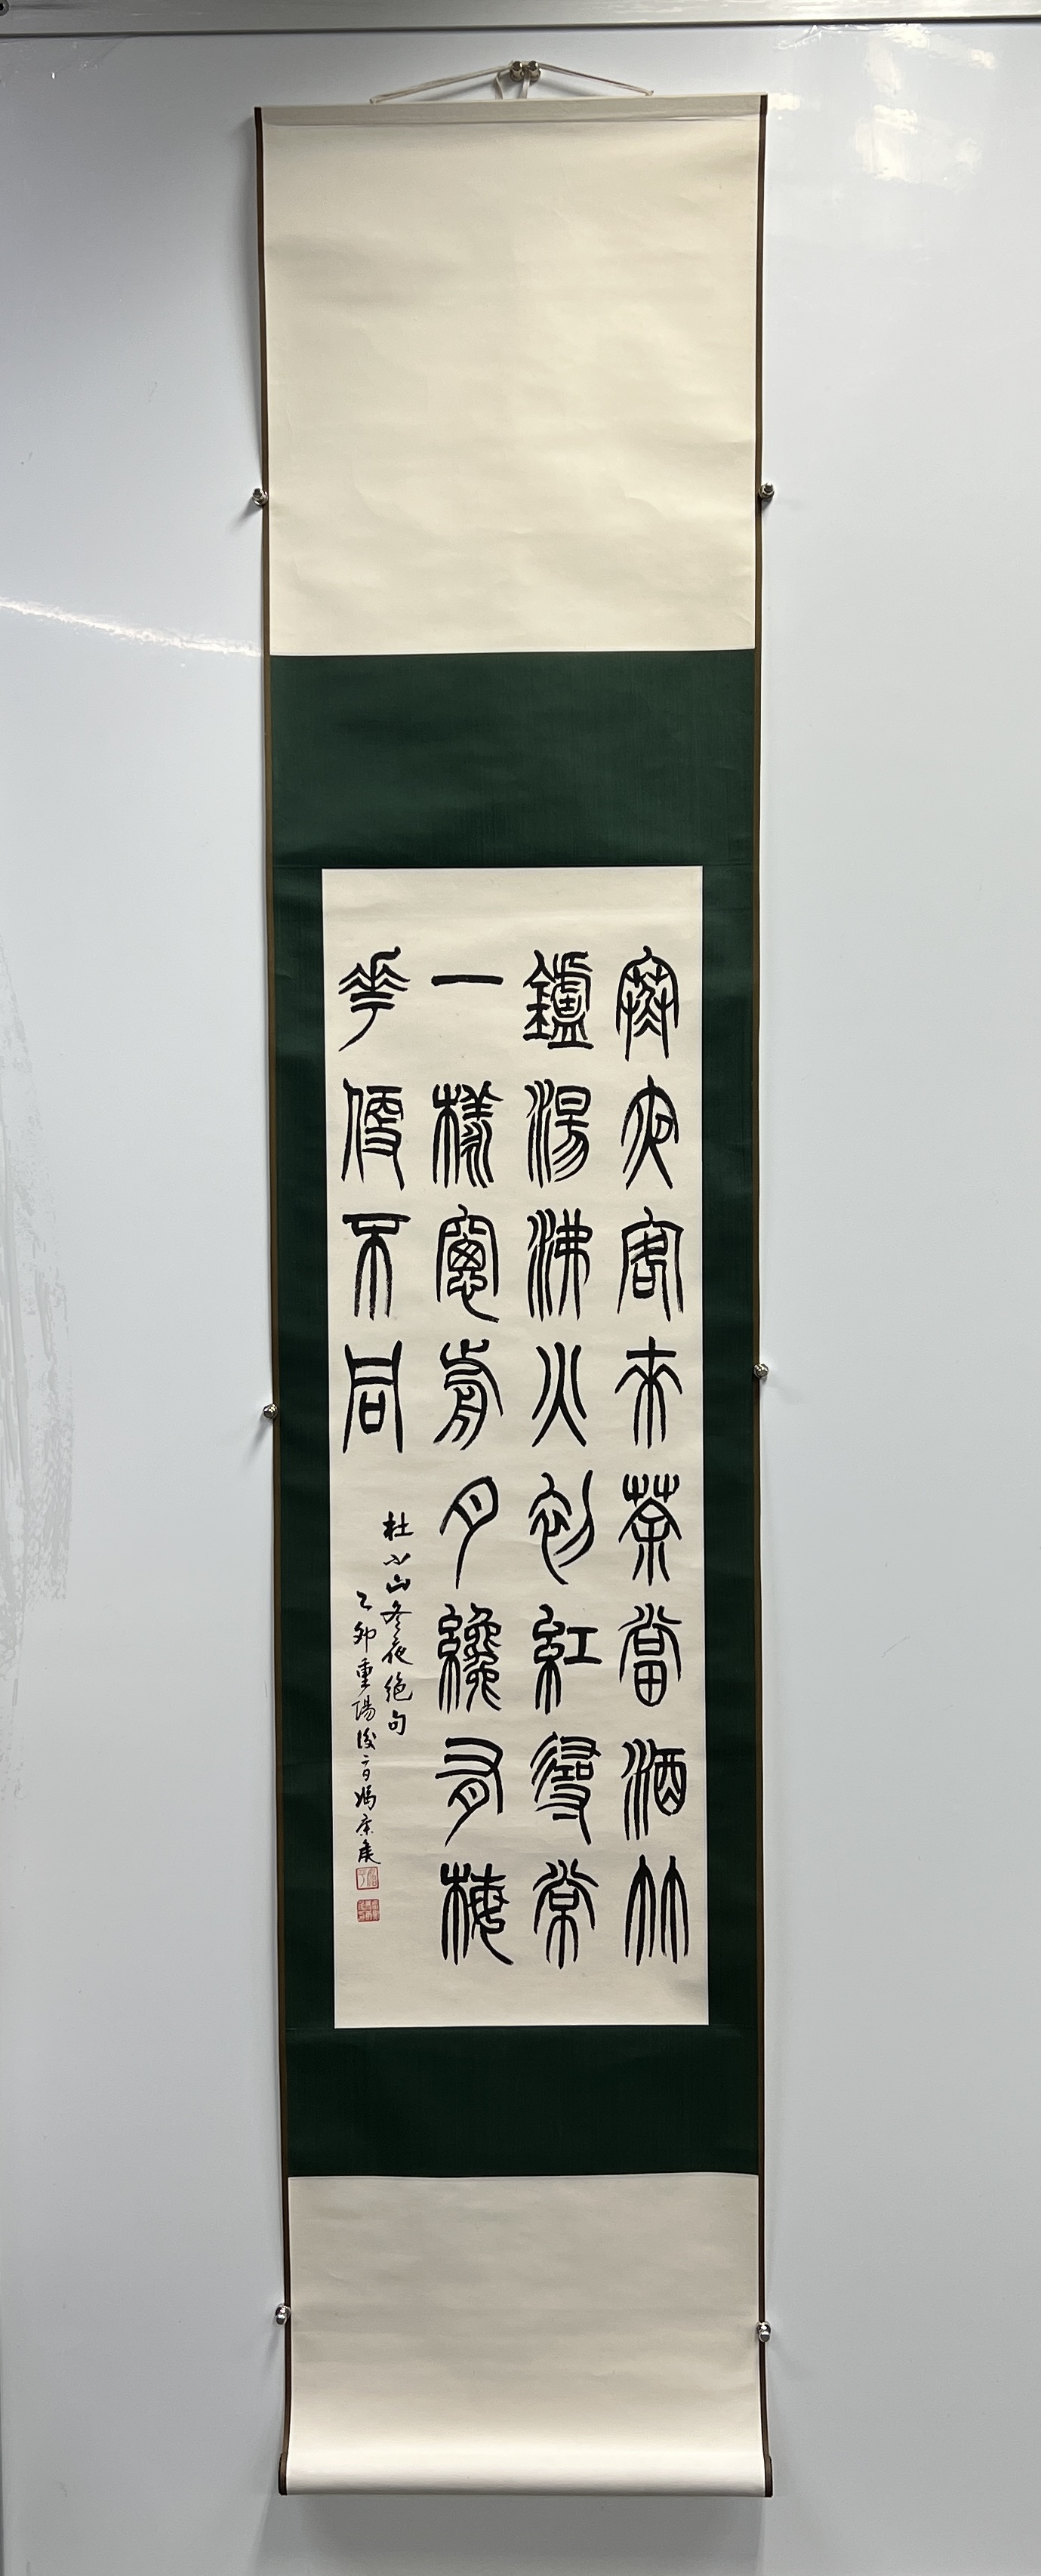 寒夜客來茶當酒竹
鑪湯沸火初紅尋常
一樣窗前月纔有梅
花便不同
杜小山冬夜絕句
乙卯重陽後一日馮康侯